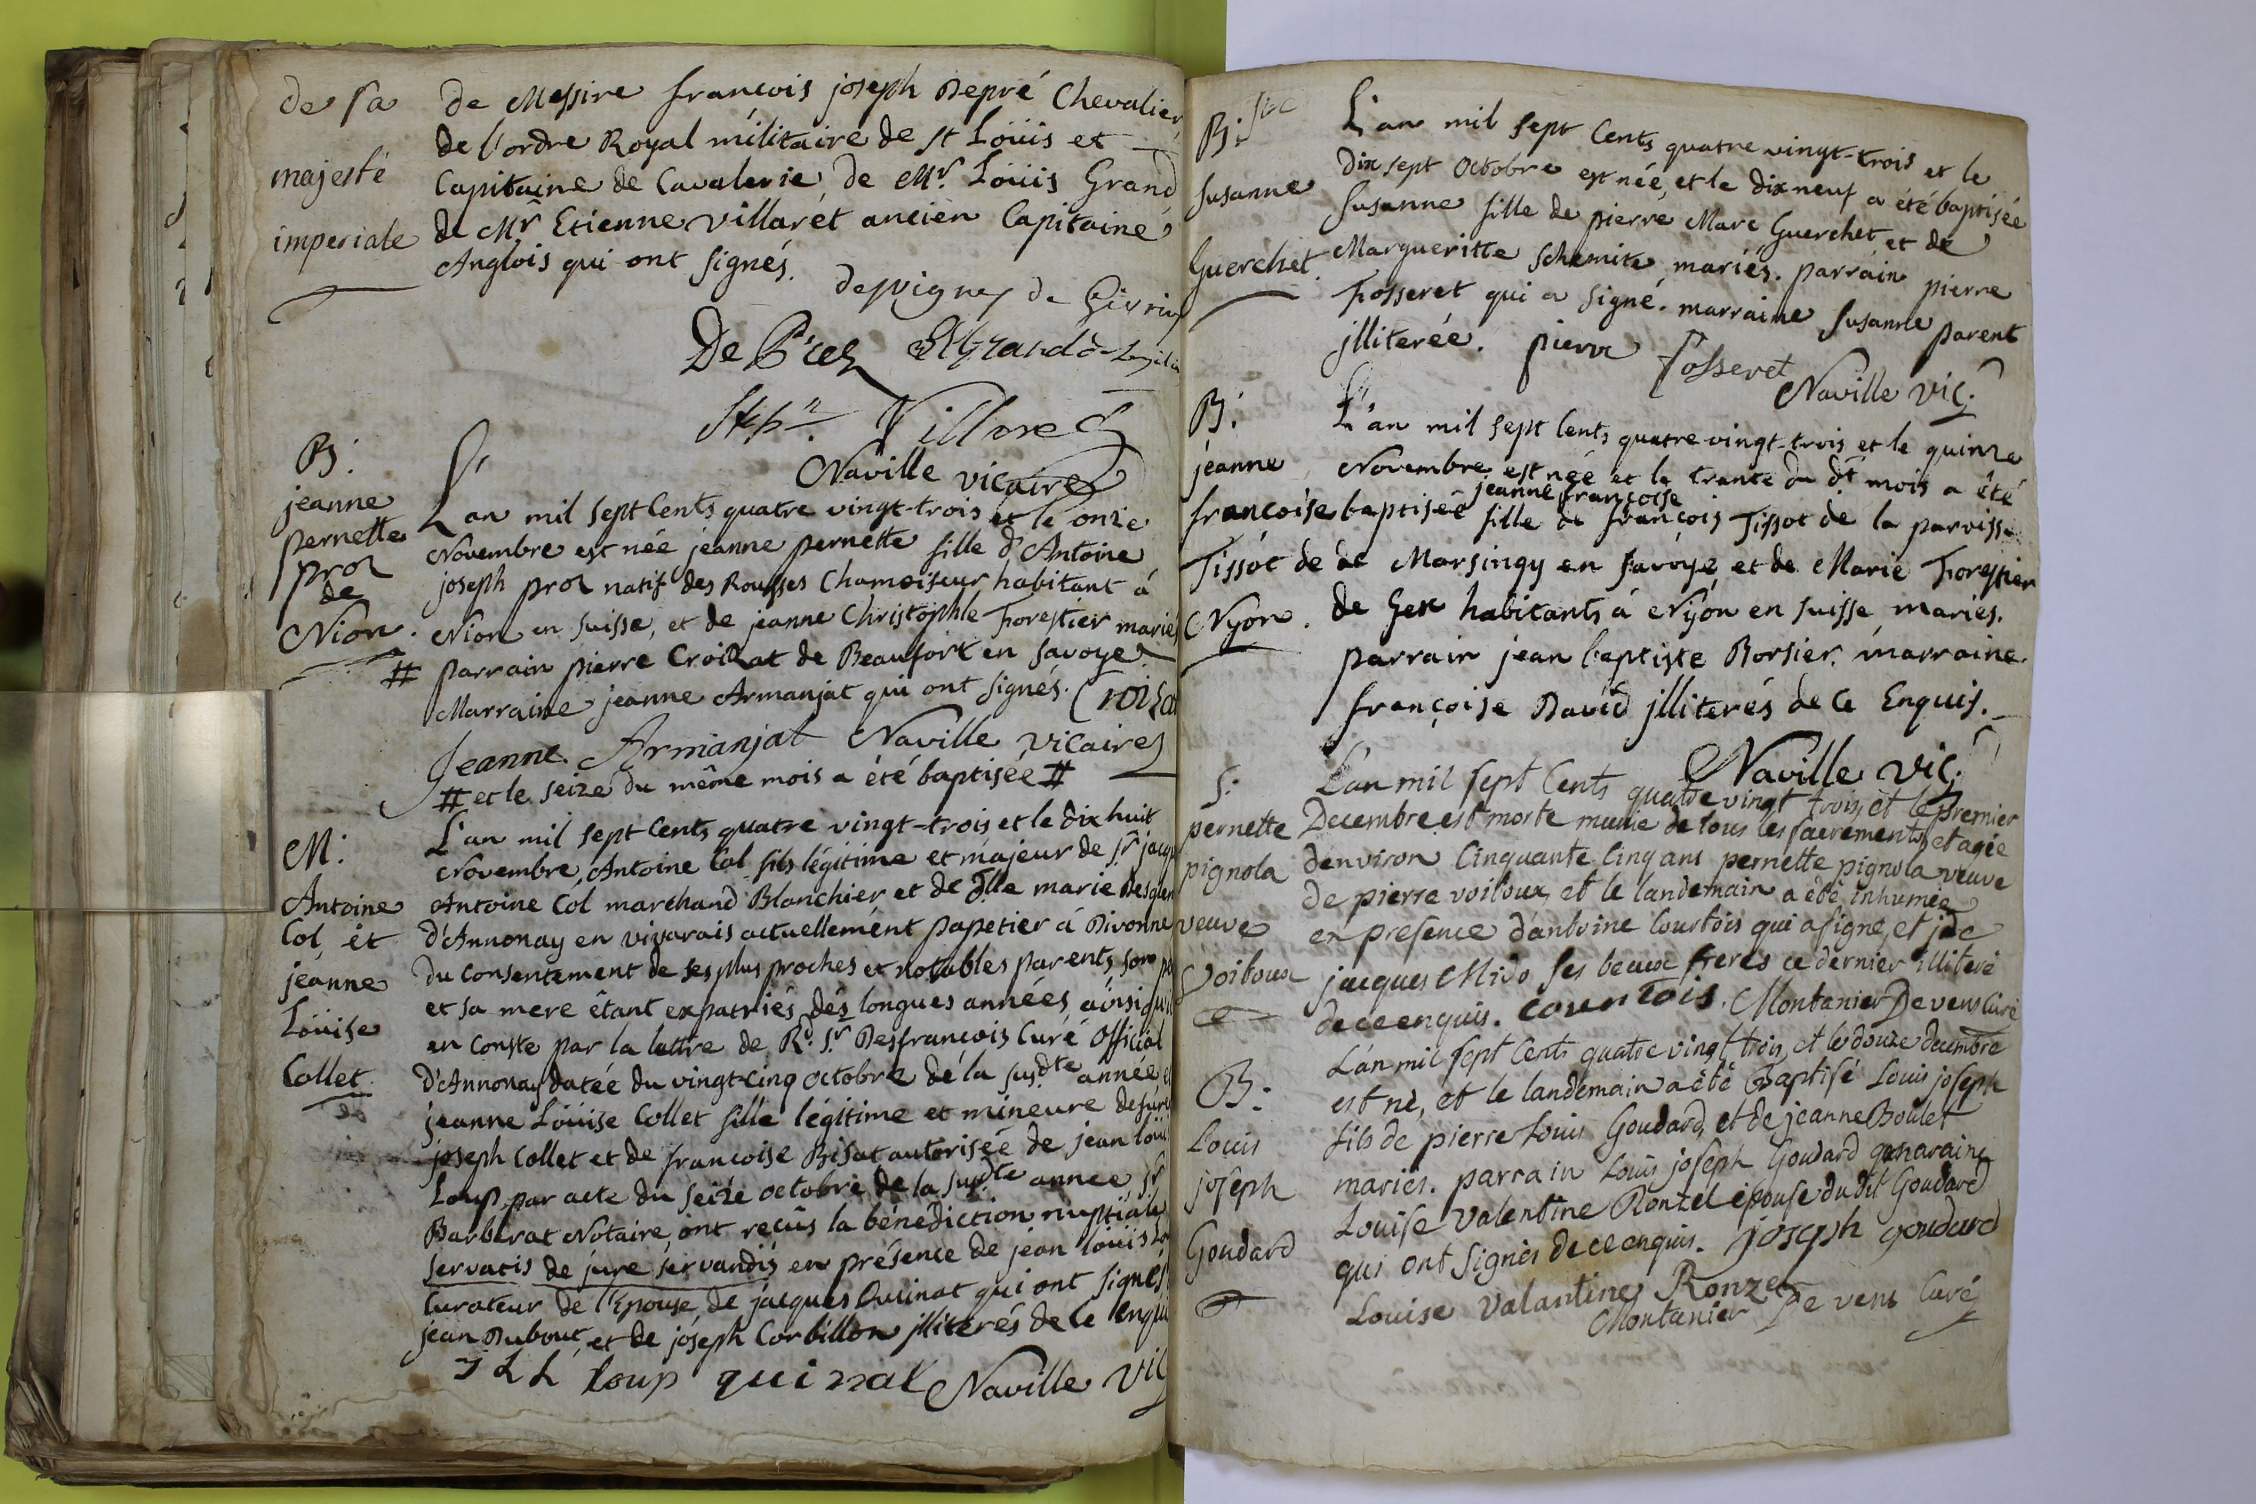 de sa
majesté
imperiale
de Messire francois joseph Depré Chevalier
de l'ordre Royal militaire de st Loüis et
Capitaine de Cavalerie, de Mr. Loüis Grand
de Mr Etienne Villarét ancien Capitaine
Anglois qui ont signés.
De Prez
Villaret
Naville vicaire
B.
jeanne
pernette
proz
de
Nion.
L'an mil sept Cents quatre vingt-trois et le onze
Novembre est née jeanne pernette fille d'Antoine
joseph proz natif des Rousses Chamoiseur, habitant á
Nion en suisse, et de jeanne Christophle Forestier mariés
# parrain pierre Croizat de Beaufort en savoye
Marraine jeanne Armanjat qui ont signés.
Jeanne Armanjat Naville vicaire
# et le seize du même mois a été baptisée #
M.
Antoine
Col, et
jeanne
Loüise
Collet
L'an mil sept Cents quatre vingt-trois et le dix huit
Novembre, Antoine Col fils légitime et majeur de sr
Antoine Col marchand Blanchier et de dlle marie
d'Annonay en vivarais actuellement papetier á Divonne
du Consentement de ses plus proches et notables parents, son
et sa mere étant expatriés dés longues années, ainsi
en Conste par la lettre de Rd. Sr Desfrancois Curé Official
D'Annonay datée du vingt-cinq octobre de la susdte année
jeanne Loüise Collet fille légitime et mineure de
joseph Collet et de francoise Bisat autorisée de jean
Loup, par acte du seize octobre de la susdte année sr
Barberat Notaire, ont recûs la bénediction nuptiale
servatis de jure servandis en présence de jean loüis
Curateur de l'Epouse, de jacques Quinat qui ont signés,
jean Dubout, et de joseph Corbillon illiterés de Ce
JLL Loup quinat Naville Vic
B.
susanne
Guerchet.
L'an mil sept Cents quatre vingt-trois et le
dix sept Octobre est née, et le dix neuf a été baptisée
susanne fille de pierre Marc Guerchet et de
Margueritte Schemite, mariés. parrain pierre
Fosseret qui a signé. marraine susanne parent
jlliterée. pierre fosseret
Naville vic.
B.
jeanne
françoise
Tissot de
Nyon.
L'an mil sept Cents quatre vingt-trois et le quinze
Novembre est née et le trante du dt mois a été
jeanne françoise
baptisée fille de françois Tissot de la parroisse
de Marsingy en savoye, et de Marie Forestier
de Gex habitants á Nyon en suisse, mariés.
parrain jean baptiste Borsier. marraine
françoise David jlliterés de Ce Enquis.
Naville Vic.
S.
pernette
pignola
veuve
Voitoux
L'an mil sept Cents quatre vingt trois, et le premier
Decembre est morte munie de tous les sacrements, et agée
denviron Cinquante Cinq ans pernette pignola veuve
de pierre voitoux, et le landemain a été inhumée
en presence d'antoine Courtois qui a signé, et de
jacques Mido ses beaux freres ce dernier illiteré
de ce enquis. courtois. Montanier De vens Curé
B.
Louis
joseph
Goudard
L'an mil sept Cents quatre vingt trois, et le douze decembre
est né, et le landemain a été Baptisé Louis joseph
fils de pierre Louis Goudard, et de jeanne Boulet
mariés. parrain Louis joseph Goudard maraine
Louise Valentine Ronzel épouse dudit Goudard
qui ont signés de ce enquis. joseph goudard
Louise Valantine Ronzet
Montanier De vens Curé